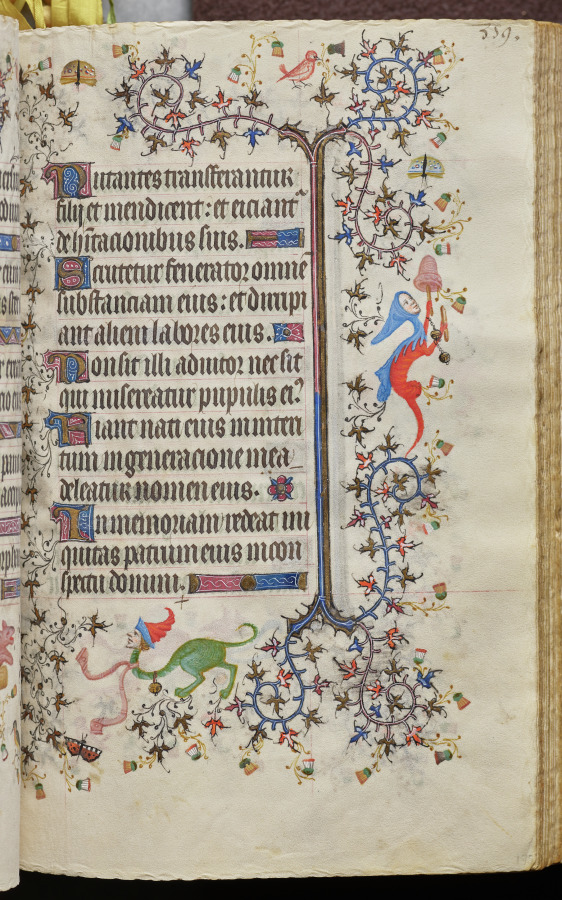 339.
Nutantes transferantur
filii et mendicent: et eiciant
de hitacionibus suis.
Scrutetur fenerator omnē
substanciam eius: et diripi
ant alieni labores eius.
Non sit illi adiutor nec sit
qui misereatur pupillis eiꝰ
Fiant nati eius in interi
tum in generacione mea
deleatur nomen eius.
In memoriam redeat ini
quitas patrum eius in con
spectu domini.